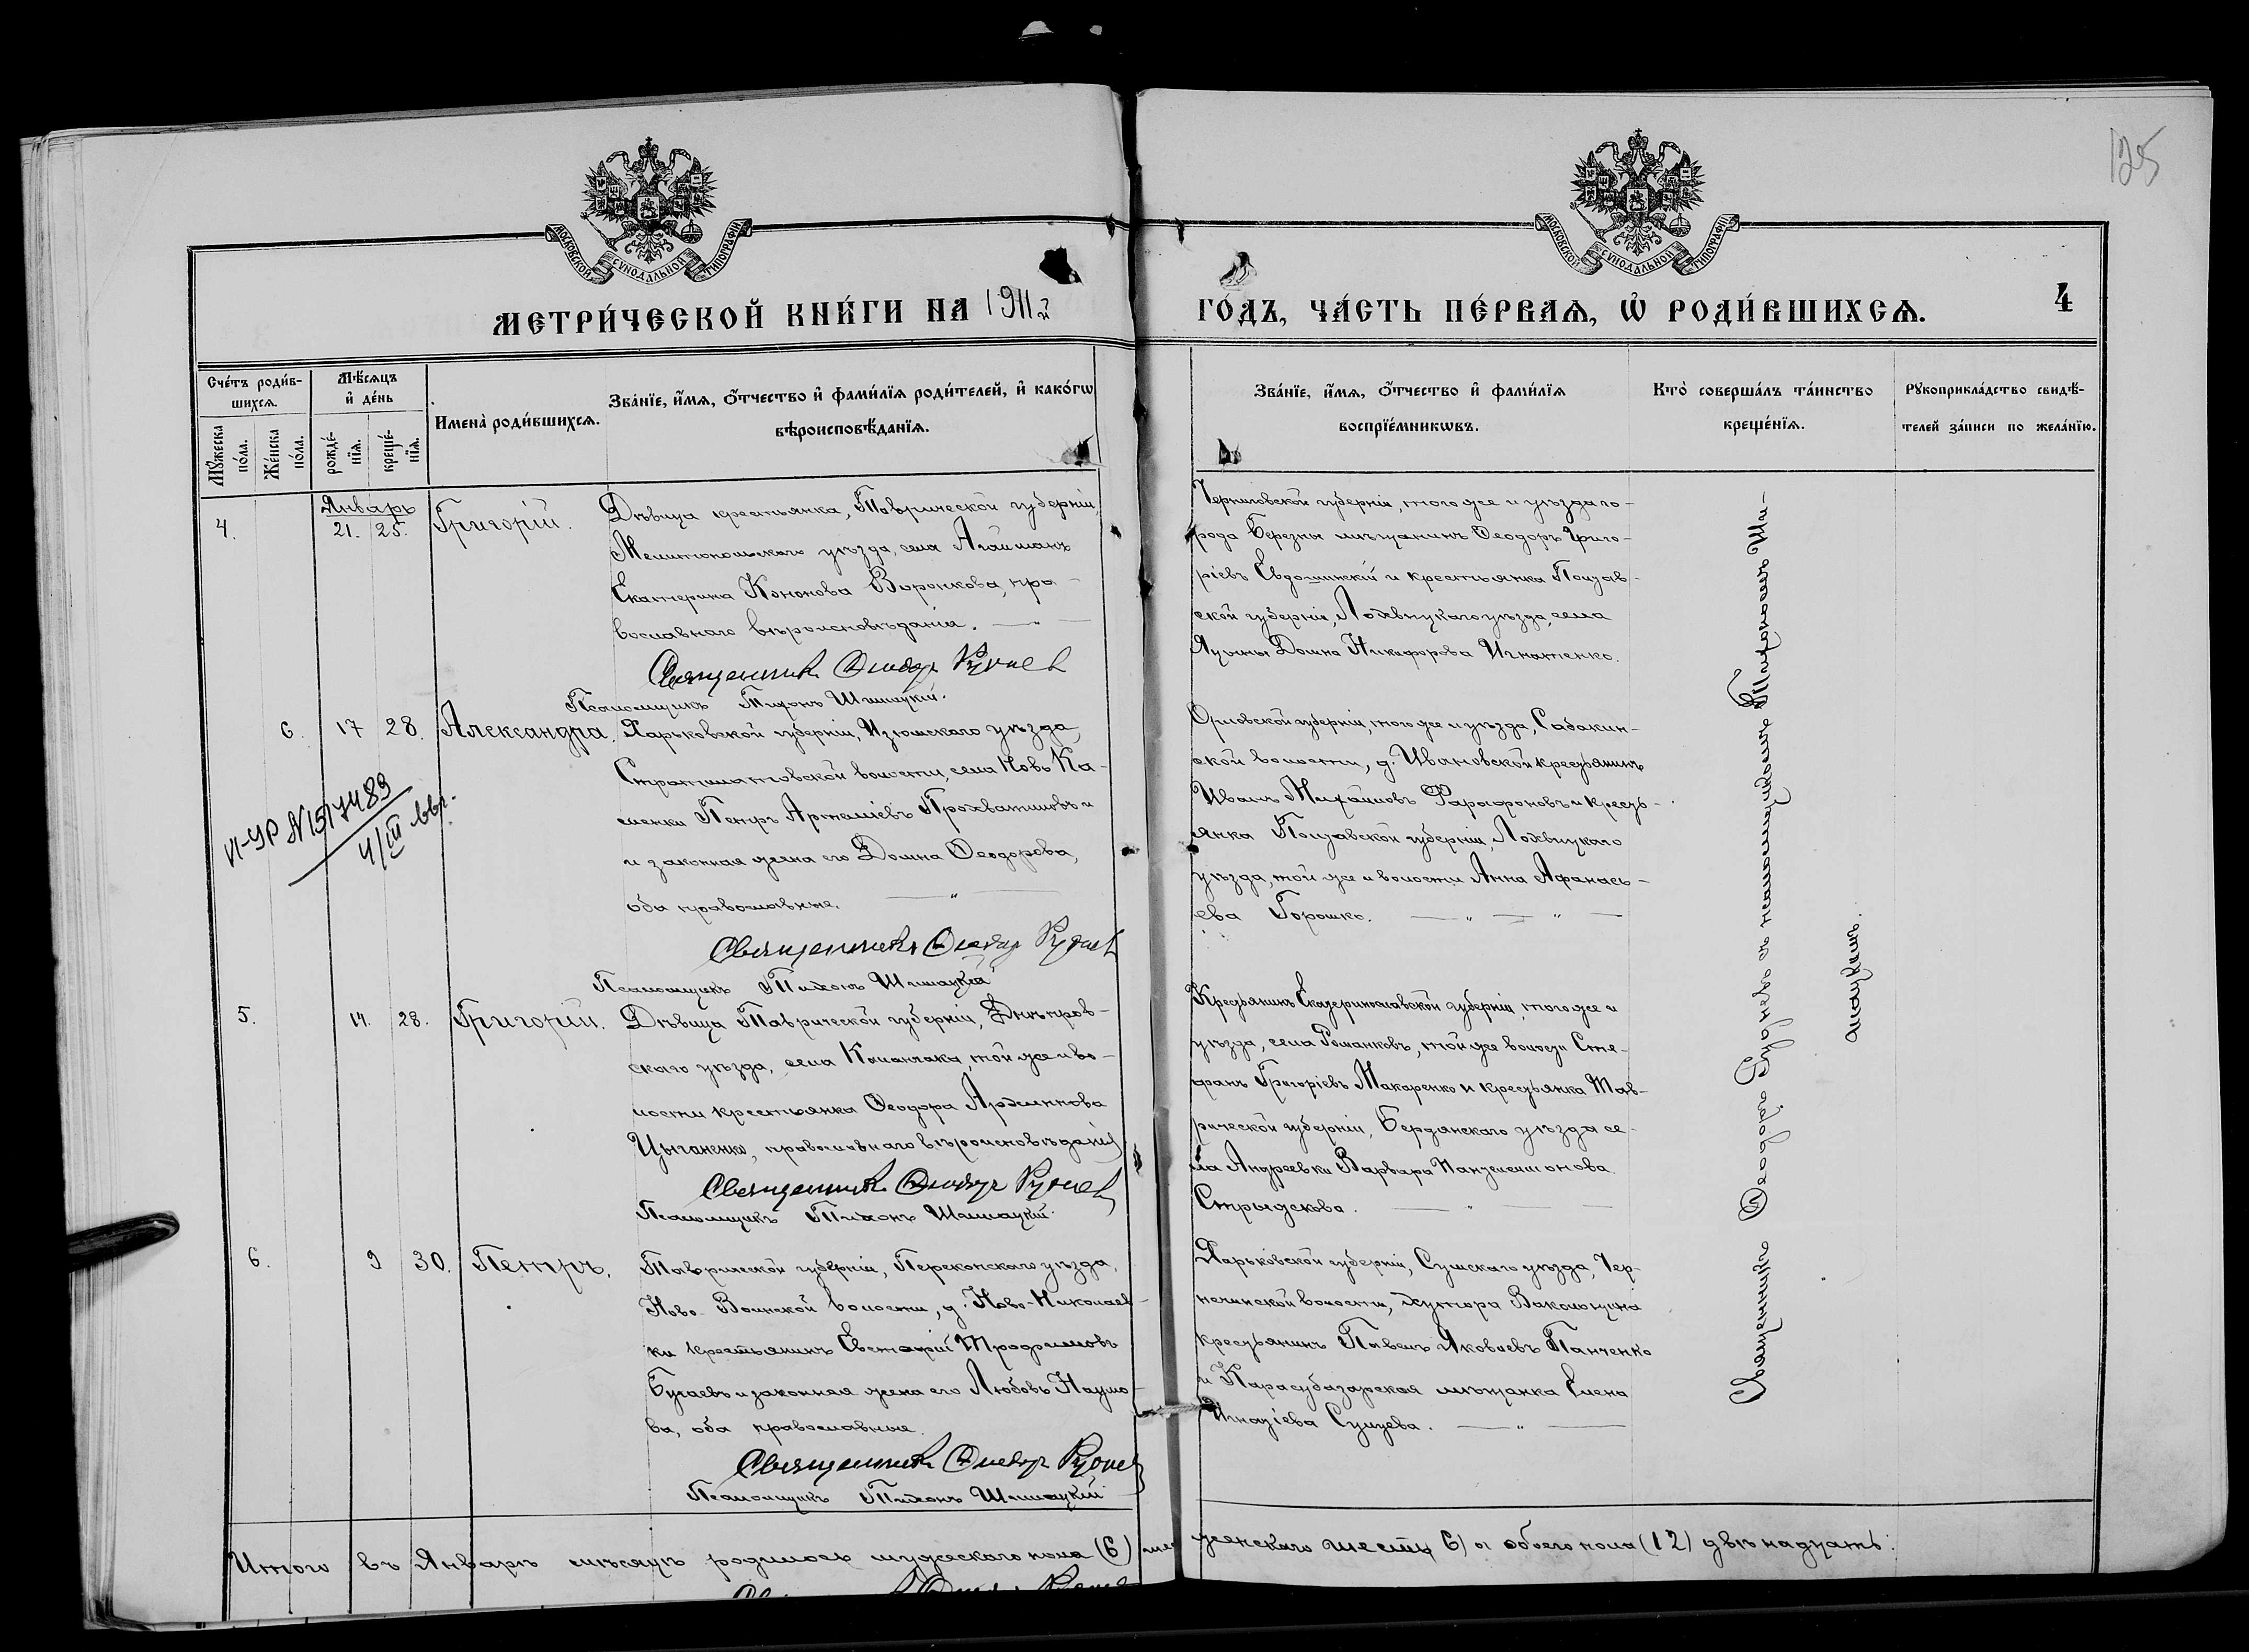 125
МОСКОВСКОЙ СѴНОДАЛЬНОЙ ТИПОГРАФІИ
МОСКОВСКОЙ СѴНОДАЛЬНОЙ ТИПОГРАФІИ
МЕТРИ́ЧЕСКОЙ КНИ́ГИ НА 1911й
ГО́ДЪ, ЧА́СТЬ ПЕ́РВАѦ, Ѡ҆ РОДИ́ВШИХСѦ.
4
Сче́тъ роди́в-
шихсѧ.
Мꙋ́жеска по́ла.
Же́нска по́ла.
Мѣ́сѧцъ
и҆ де́нь
рожде́-
нїѧ.
креще́-
нїѧ.
Имена̀ роди́вшихсѧ.
Зва́нїе, и҆́мѧ, ѻ҆́тчество и҆ фами́лїѧ роди́телей, и҆ како́гѡ
вѣроисповѣ́данїѧ.
Зва́нїе, и҆́мѧ, ѻ҆́тчество и҆ фами́лїѧ
воспрїе́мникѡвъ.
Кто̀ соверша́лъ та́инство
креще́нїѧ.
Рꙋкоприкла́дство свидѣ́-
телей за́писи по жела́нїю.
Январь
4.
21. 25.
Григорій.
Дѣвица крестьянка, Таврической губерніи,
Мелитопольскаго уѣзда, села Агайманъ
Екатерина Кононова Воронкова, пра-
вославнаго вѣроисповѣданія.
Священникъ Ѳеодоръ Руднев
Псаломщикъ Тихонъ Шишацкій.
Черниговской губерніи, того же и уѣзда го-
рода Березны мѣщанинъ Ѳеодоръ Григо-
ріевъ Евдошинскій и крестьянка Полтав-
ской губерніи, Лохвицкаго уѣзда, села
Яцины Домна Никифорова Игнатенко.
6.
17 28.
Александра.
Харьковской губерніи, Изюмскаго уѣзда,
волости, села Ново Ка-
менки Петръ Артеміевъ Прохватиловъ
и законная жена его Домна Ѳеодорова,
оба православные.
Священникъ Ѳеодор Руднев
Псаломщикъ Тихонъ Шишацкій
Орловской губерніи, того же и уѣзда, Сабакин-
ской волости, д. Ивановской крестьянинъ
Иванъ Михаиловъ Фарафоновъ и кресть-
янка Полтавской губерніи, Лохвицкаго
уѣзда, той же и волости Анна Афанась-
ева Горошко.
И-УР №1517489
4/III
5.
14. 28.
Григорій.
Дѣвица Таврической губерніи, Днѣпров-
скаго уѣзда, села Каланчака, той же и во-
лости крестьянка Ѳеодора
Цыганенко, православнаго вѣроисповѣданія
Священникъ Ѳеодоръ Руднев
Псаломщикъ Тихонъ Шишацкій.
Крестьянинъ Екатеринославской губерніи, того же и
уѣзда, села Романковъ, той же волости Сте-
фанъ Григоріевъ Макаренко и крестьянка Тав-
рической губерніи, Бердянскаго уѣзда се-
ла Андреевки Варвара Пантелеимонова
6.
9 30.
Петръ.
Таврической губерніи, Перекопскаго уѣзда,
Ново-Воинской волости, д. Ново-Николаев-
ки крестьянинъ Трофимовъ
Бугаевъ и законная жена его Любовь Наумо-
ва, оба православные.
Священникъ Ѳеодоръ Руднев
Псаломщикъ Тихонъ Шишацкій
Харьковской губерніи, Сумскаго уѣзда, Чер-
нечинской волости, хутора
крестьянинъ Павелъ Яковлевъ Панченко
и Карасубазарская мѣщанка Елена
Игнатіева
Священникъ Ѳеодоръ Рудневъ съ псаломщикомъ Тихономъ Ши-
шацкимъ.
Итого въ Январѣ мѣсяцѣ родилось мужескаго пола (6)
женскаго шесть 6) и обоего пола (12) двѣнадцать.